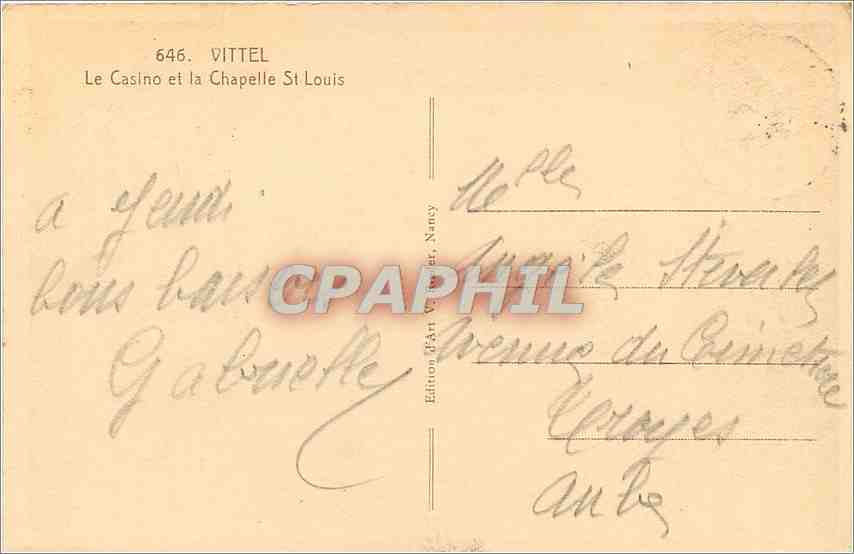 646. VITTEL
Le Casino et la Chapelle St Louis
a Jeudi
bons baisers
Gabrielle
Edition d'Art V. Nancy
CPAPHIL
Melle
Avenue du Cimetière
Troyes
Aube